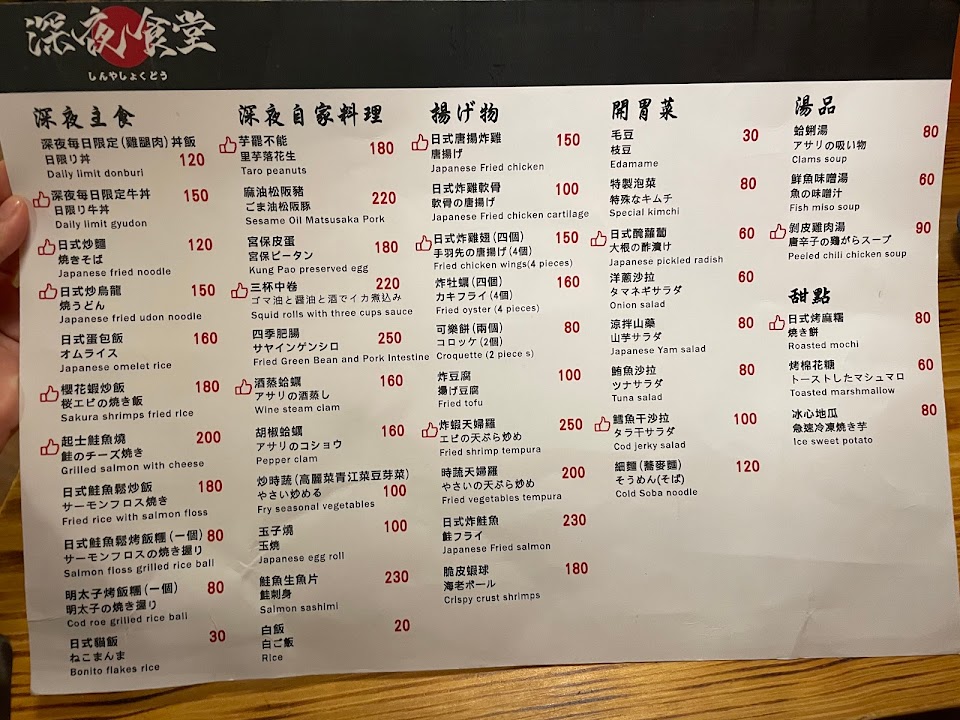 深夜食堂
しんやしょくどう
深夜主食
深夜每日限定(雞腿肉)丼飯
日限り丼 120
Daily limit donburi
深夜每日限定牛丼 150
日限り牛丼
Daily limit gyudon
日式炒麵 120
焼きそば
Japanese fried noodle
日式炒烏龍 150
焼うどん
Japanese fried udon noodle
日式蛋包飯 160
オムライス
Japanese omelet rice
櫻花蝦炒飯 180
桜エビの焼き飯
Sakura shrimps fried rice
起士鮭魚燒 200
鮭のチーズ焼き
Grilled salmon with cheese
日式鮭魚鬆炒飯 180
サーモンフロス焼き
Fried rice with salmon floss
日式鮭魚鬆烤飯糰(一個) 80
サーモンフロスの焼き握り
Salmon floss grilled rice ball
明太子烤飯糰(一個) 80
明太子の焼き握り
Cod roe grilled rice ball
日式貓飯 30
ねこまんま
Bonito flakes rice
深夜自家料理
芋罷不能 180
里芋落花生
Taro peanuts
麻油松阪豬 220
ごま油松阪豚
Sesame Oil Matsusaka Pork
宮保皮蛋 180
宮保ピータン
Kung Pao preserved egg
三杯中卷 220
ゴマ油と醤油と酒でイカ煮込み
Squid rolls with three cups sauce
四季肥腸 250
サヤインゲンシロ
Fried Green Bean and Pork Intestine
酒蒸蛤蠣 160
アサリの酒蒸し
Wine steam clam
胡椒蛤蠣 160
アサリのコショウ
Pepper clam
炒時蔬(高麗菜青江菜豆芽菜)
やさい炒める 100
Fry seasonal vegetables
玉子燒 100
玉焼
Japanese egg roll
鮭魚生魚片 230
鮭刺身
Salmon sashimi
白飯 20
白ご飯
Rice
揚げ物
日式唐揚炸雞 150
唐揚げ
Japanese Fried chicken
日式炸雞軟骨 100
軟骨の唐揚げ
Japanese Fried chicken cartilage
日式炸雞翅(四個) 150
手羽先の唐揚げ(4個)
Fried chicken wings(4 pieces)
炸牡蠣(四個) 160
カキフライ(4個)
Fried oyster (4 pieces)
可樂餅(兩個) 80
コロッケ(2個)
Croquette (2 piece s)
炸豆腐 100
揚げ豆腐
Fried tofu
炸蝦天婦羅 250
エビの天ぷら炒め
Fried shrimp tempura
時蔬天婦羅 200
やさいの天ぷら炒め
Fried vegetables tempura
日式炸鮭魚 230
鮭フライ
Japanese Fried salmon
脆皮蝦球 180
海老ボール
Crispy crust shrimps
開胃菜
毛豆 30
枝豆
Edamame
特製泡菜 80
特殊なキムチ
Special kimchi
日式醃蘿蔔 60
大根の酢漬け
Japanese pickled radish
洋蔥沙拉 60
タマネギサラダ
Onion salad
涼拌山藥 80
山芋サラダ
Japanese Yam salad
鮪魚沙拉 80
ツナサラダ
Tuna salad
鱈魚干沙拉 100
タラ干サラダ
Cod jerky salad
細麵(蕎麥麵) 120
そうめん(そば)
Cold Soba noodle
湯品
蛤蜊湯 80
アサリの吸い物
Clams soup
鮮魚味噌湯 60
魚の味噌汁
Fish miso soup
剝皮雞肉湯 90
唐辛子の鶏がらスープ
Peeled chili chicken soup
甜點
日式烤麻糬 80
焼き餅
Roasted mochi
烤棉花糖 60
トーストしたマシュマロ
Toasted marshmallow
冰心地瓜 80
急速冷凍焼き芋
Ice sweet potato